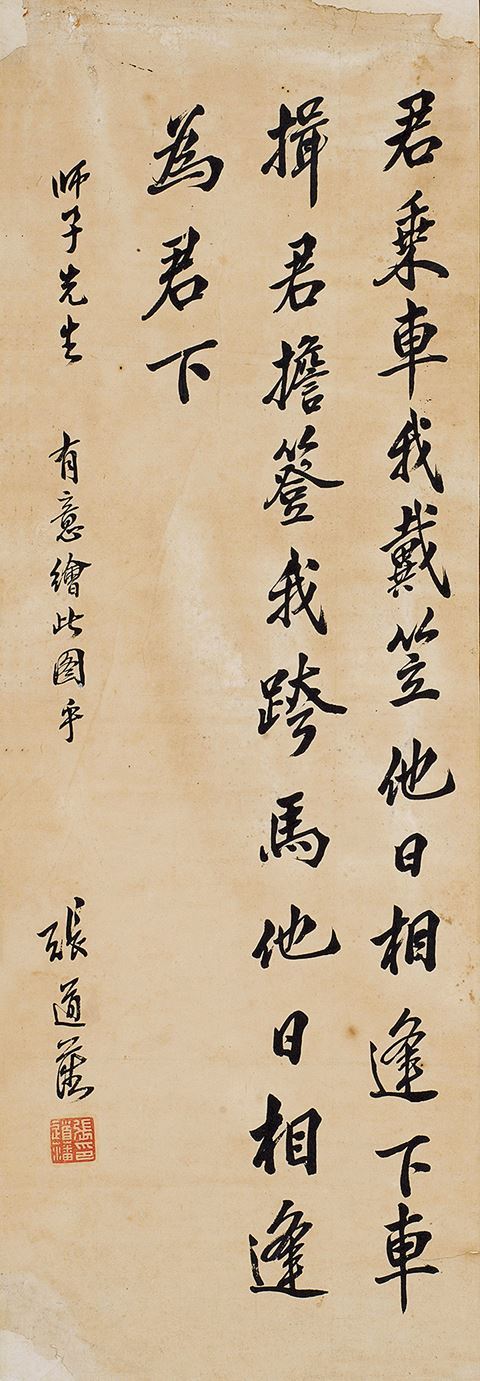 君乘車我戴笠他日相逢下車
揖君擔簦我跨馬他日相逢
為君下
师子先生 有意繪此图乎
張道藩
張道藩印